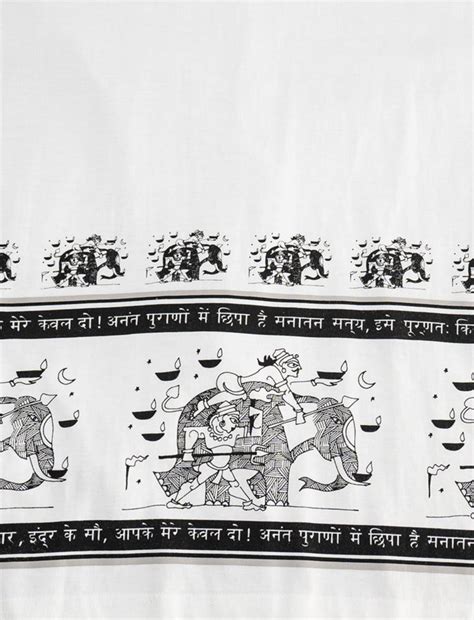 के मेरे केवल दो! अनंत पुराणों में छिपा है सनातन सत्य, इसे पूर्णतः कि
ार, इंद्र के सौ, आपके मेरे केवल दो! अनंत पुराणों में छिपा है सनातन